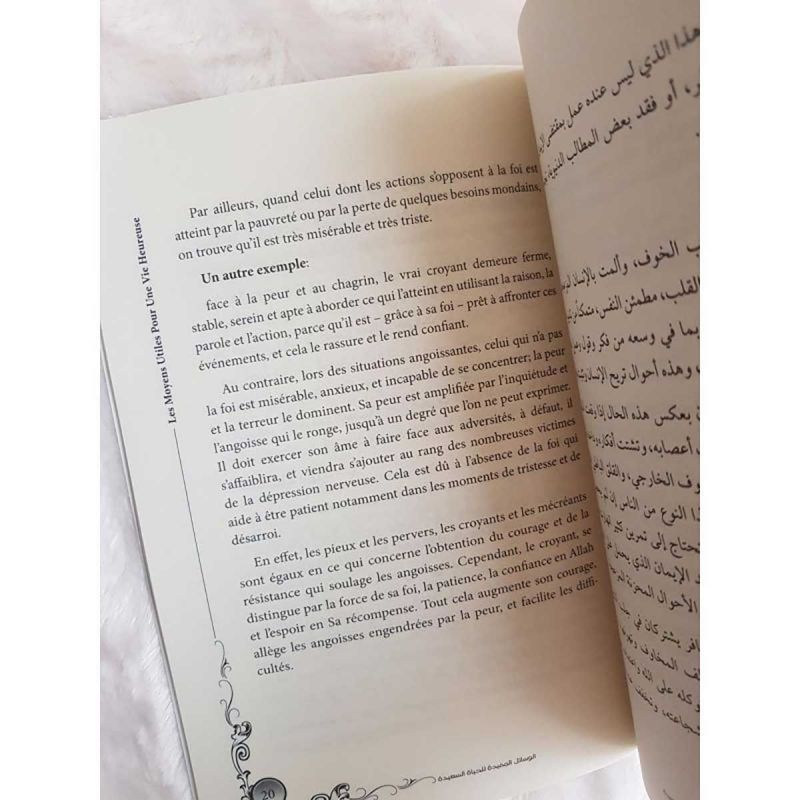 Les Moyens Utiles Pour Une Vie Heureuse
Par ailleurs, quand celui dont les actions s'opposent à la foi est
atteint par la pauvreté ou par la perte de quelques besoins mondains,
on trouve qu'il est très misérable et très triste.
Un autre exemple:
face à la peur et au chagrin, le vrai croyant demeure ferme,
stable, serein et apte à aborder ce qui l'atteint en utilisant la raison, la
parole et l'action, parce qu'il est – grâce à sa foi – prêt à affronter ces
événements, et cela le rassure et le rend confiant.
Au contraire, lors des situations angoissantes, celui qui n'a pas
la foi est misérable, anxieux, et incapable de se concentrer; la peur
et la terreur le dominent. Sa peur est amplifiée par l'inquiétude et
l'angoisse qui le ronge, jusqu'à un degré que l'on ne peut exprimer.
Il doit exercer son âme à faire face aux adversités, à défaut, il
s'affaiblira, et viendra s'ajouter au rang des nombreuses victimes
de la dépression nerveuse. Cela est dû à l'absence de la foi qui
aide à être patient notamment dans les moments de tristesse et de
désarroi.
En effet, les pieux et les pervers, les croyants et les mécréants
sont égaux en ce qui concerne l'obtention du courage et de la
résistance qui soulage les angoisses. Cependant, le croyant, se
distingue par la force de sa foi, la patience, la confiance en Allah
et l'espoir en Sa récompense. Tout cela augmente son courage,
allège les angoisses engendrées par la peur, et facilite les diffi-
cultés.
20
الوسائل المفيدة للحياة السعيدة
هذا الذي ليس عنده عمل بمقتضى
أو فقد بعض المطالب الدنيوية
الخوف، وألمت بالإنسان
القلب، مطمئن النفس،
بما في وسعه من فكر وقول
وهذه أحوال تريح الإنسان
بعكس هذه الحال إذا
أعصابه، وتشتت أفكاره
الخارجي، والقلق
النوع من الناس إن لم
تحتاج إلى تمرين كثير
الإيمان الذي يحمل
الأحوال المحزنة
يشتركان في
المخاوف
على الله